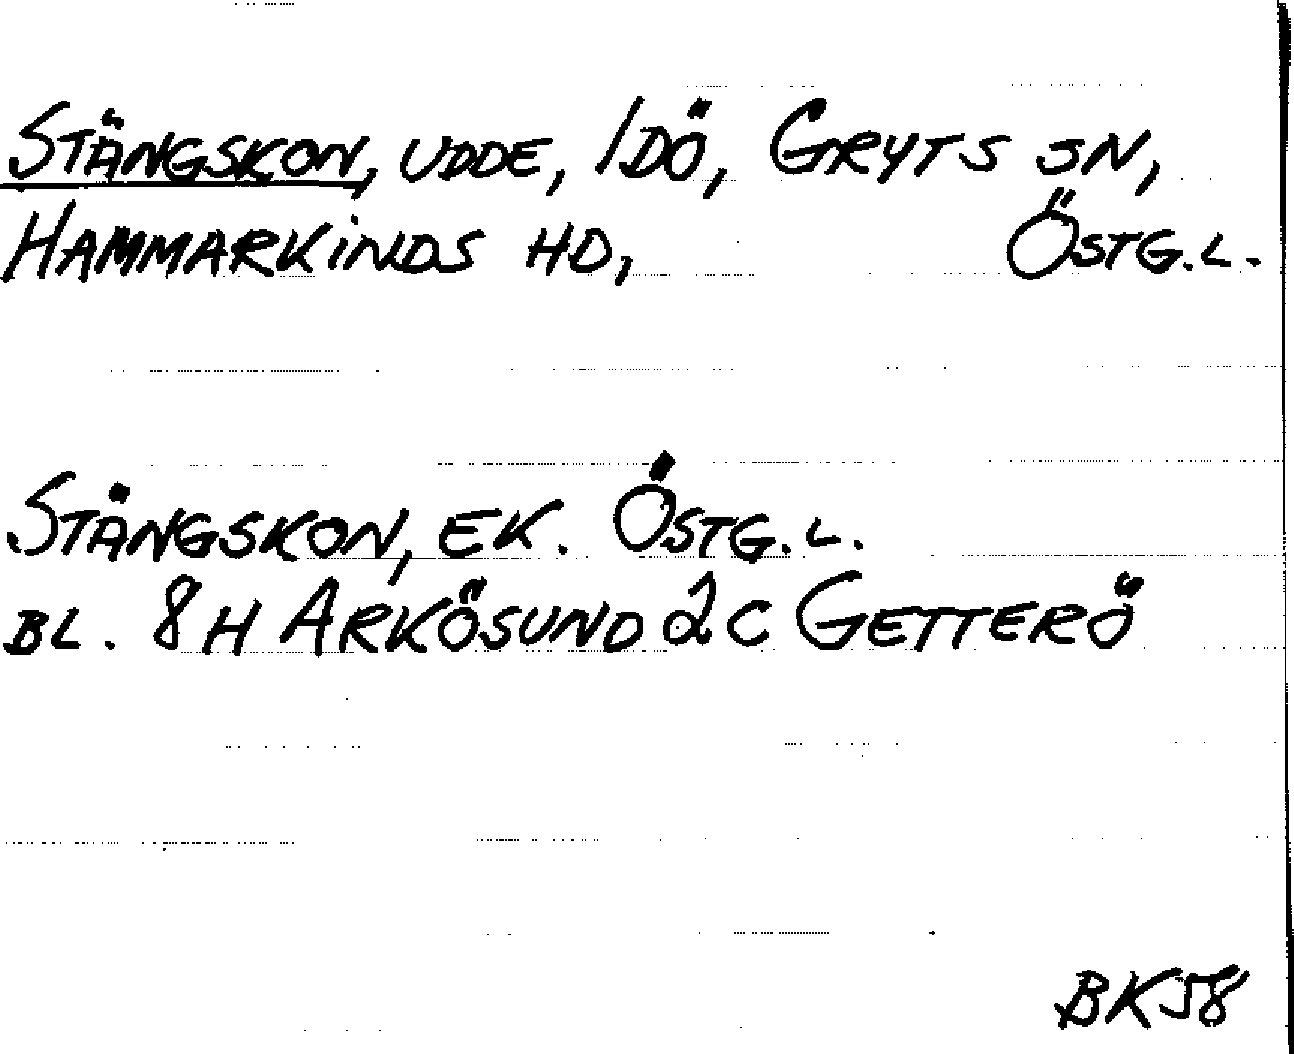 STÄNGSKON, UDDE, IDÖ, GRYTS SN,
HAMMARKINDS HD, ÖSTG.L.
STÄNGSKON, EK. ÖSTG.L.
BL. 8H ARKÖSUND 2C GETTERÖ
BK58